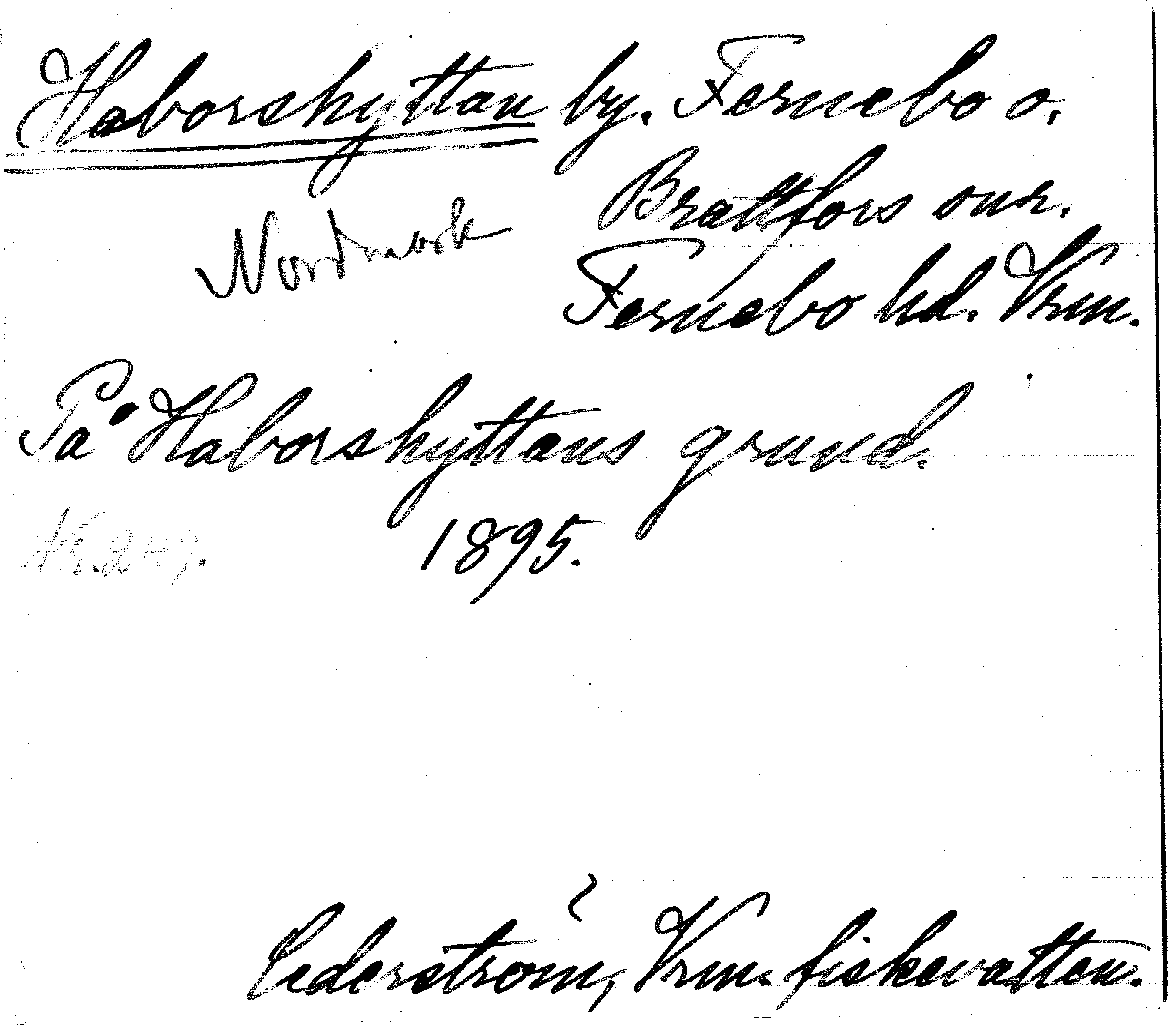 Haborshyttan by. Fernebo o.
Brattfors snr.
Nordmark
Fernebo hd. Vrm.
På Haborshyttans grund.
1895.
Cederström, Vrm. fiskevatten.